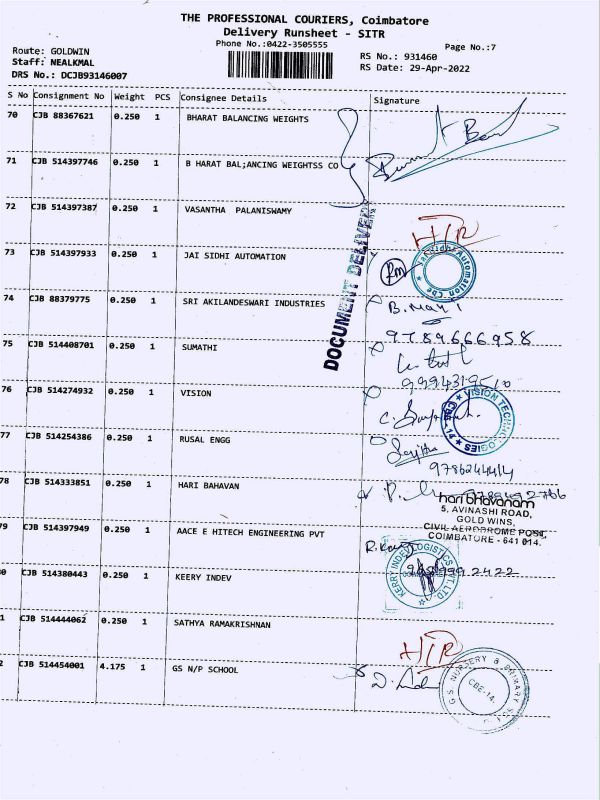 THE PROFESSIONAL COURIERS, Coimbatore
Delivery Runsheet - SITR
Phone No.:0422-3505555
Page No.:7
Route: GOLDWIN
RS No.: 931460
Staff: NEALKMAL
RS Date: 29-Apr-2022
DRS No.: DCJB93146007
S No Consignment No Weight PCS Consignee Details Signature
70 CJB 88367621 0.250 1 BHARAT BALANCING WEIGHTS
71 CJB 514397746 0.250 1 B HARAT BAL;ANCING WEIGHTSS CO
72 CJB 514397387 0.250 1 VASANTHA PALANISWAMY
73 CJB 514397933 0.250 1 JAI SIDHI AUTOMATION
DOCUMENT DELIVER
74 CJB 88379775 0.250 1 SRI AKILANDESWARI INDUSTRIES
B. Mani
9789666958
75 CJB 514408701 0.250 1 SUMATHI
76 CJB 514274932 0.250 1 VISION
VISION TECHNOLOGIES CBE-14
77 CJB 514254386 0.250 1 RUSAL ENGG
78 CJB 514333851 0.250 1 HARI BAHAVAN
hari bhavanam
5, AVINASHI ROAD,
GOLD WINS,
CIVIL AERODROME POST,
COIMBATORE - 641 014.
79 CJB 514397949 0.250 1 AACE E HITECH ENGINEERING PVT
0 CJB 514380443 0.250 1 KEERY INDEV
KERRY INDEV LOGISTICS PVT. LTD
1 CJB 514444062 0.250 1 SATHYA RAMAKRISHNAN
2 CJB 514454001 4.175 1 GS N/P SCHOOL
G.S. NURSERY & PRIMARY
CBE-14